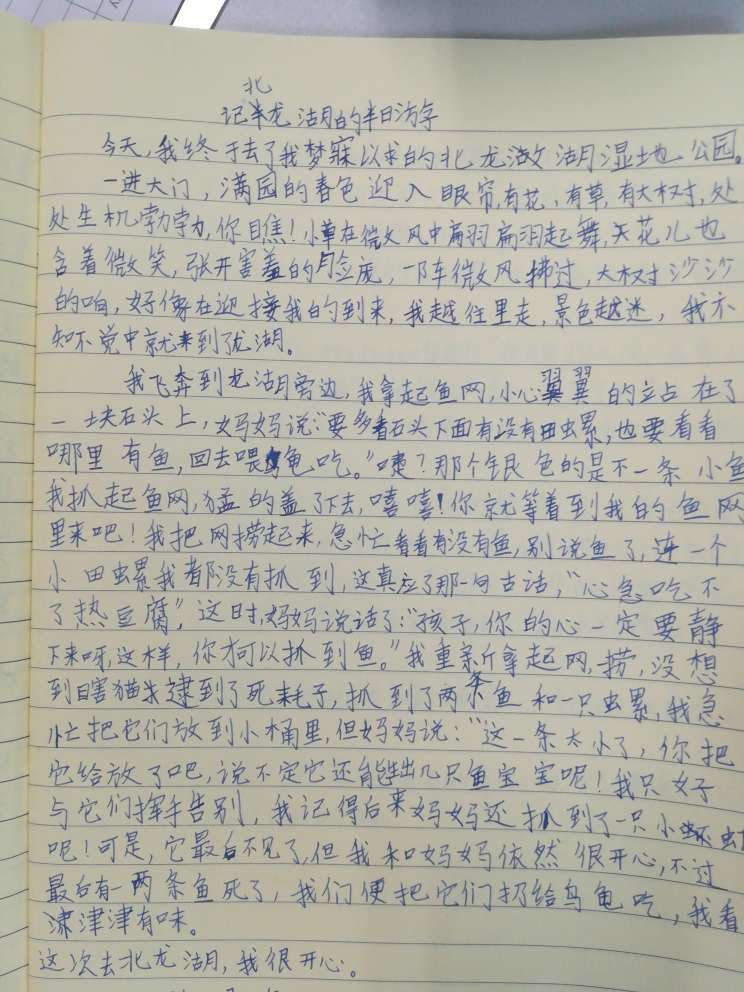 北
记半龙湖的半日游字
今天,我终于去了我梦寐以求的北龙湖湿地公园。
一进大门,满园的春色迎入眼帘,有花,有草,有大树,处
处生机勃勃,你瞧!小草在微风中扇扇起舞,花儿也
含着微笑,张开害羞的脸庞,一阵微风拂过,大树沙沙
的响,好像在迎接我的到来,我越往里走,景色越迷,我不
知不觉中就来到了龙湖。
我飞奔到龙湖旁边,我拿起鱼网,小心翼翼的站在了
一块石头上,妈妈说:“要多看石头下面有没有田螺,也要看看
哪里有鱼,回去喂龟吃。”咦?那个银色的是不一条小鱼
我抓起鱼网,猛的盖了下去,嘻嘻!你就等着到我的鱼网
里来吧!我把网捞起来,急忙看看有没有鱼,别说鱼了,连一个
小田螺我都没有抓到,这真应了那一句古话,“心急吃不
了热豆腐”,这时,妈妈说话了:“孩子,你的心一定要静
下来呀,这样,你才可以抓到鱼。”我重新拿起网,捞,没想
到瞎猫逮到了死耗子,抓到了两条鱼和一只螺,我急
忙把它们放到小桶里,但妈妈说:“这一条太小了,你把
它给放了吧,说不定它还能生出几只鱼宝宝呢!我只好
与它们挥手告别,我记得后来妈妈还抓到了一只小虾
呢!可是,它最后不见了,但我和妈妈依然很开心,不过
最后有一两条鱼死了,我们便把它们扔给乌龟吃,我看
津津有味。
这次去北龙湖,我很开心。